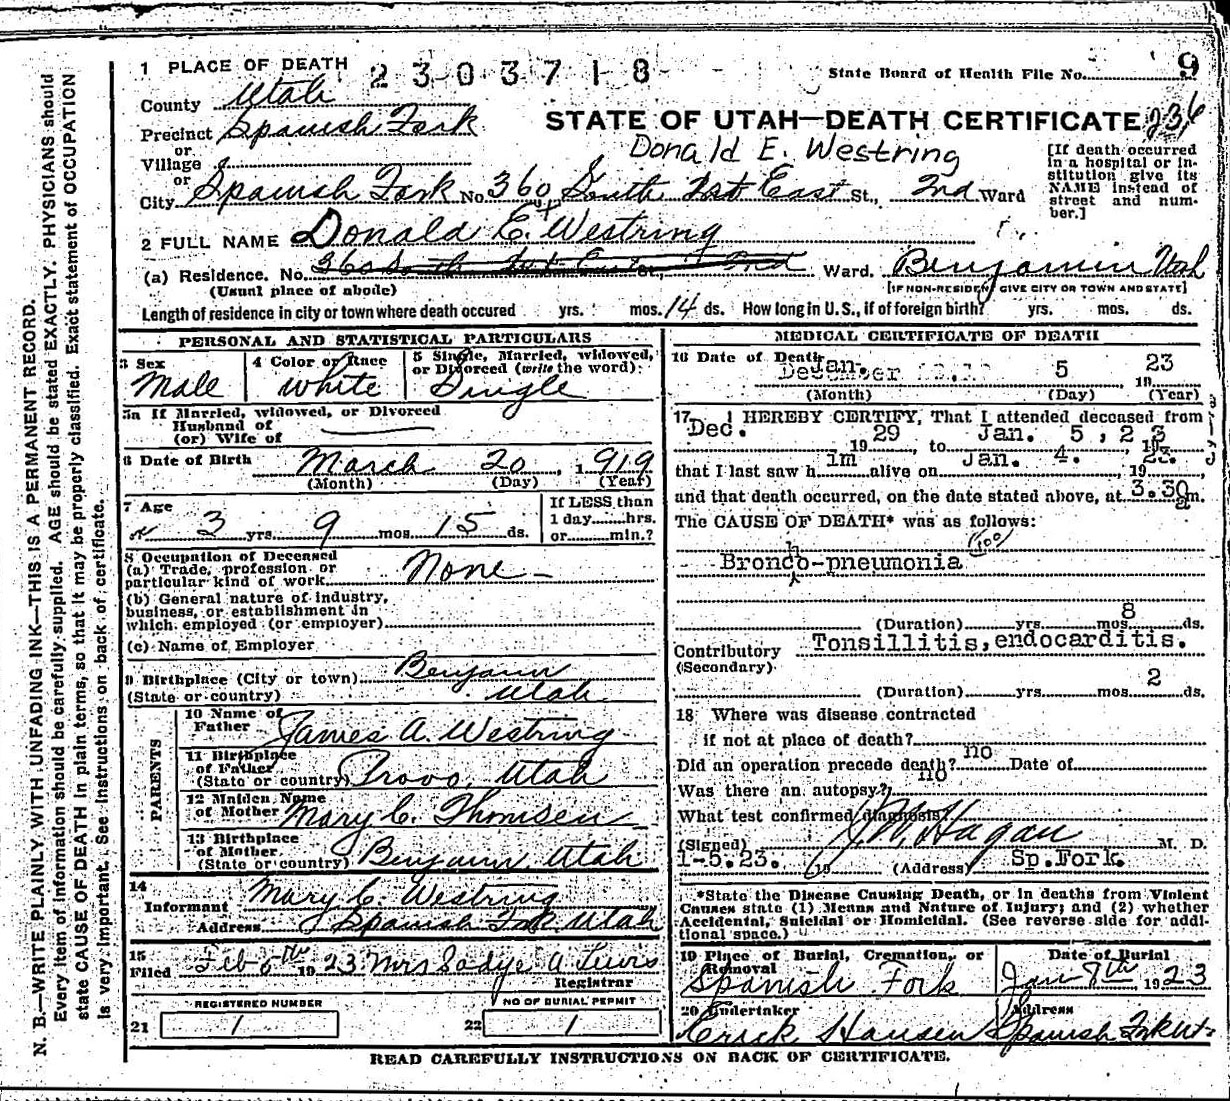 1 PLACE OF DEATH 2303718
State Board of Health File No. 9
County Utah
Precinct Spanish Fork
STATE OF UTAH—DEATH CERTIFICATE 236
or
Village
Donald E. Westring
[If death occurred in a hospital or institution give its NAME instead of street and number.]
or
City Spanish Fork No. 360 South 1st East St., 2nd Ward
2 FULL NAME Donald E. Westring
(a) Residence. No. 360 South 1st East St., 2nd Ward. Benjamin Utah
(Usual place of abode) [IF NON-RESIDENT GIVE CITY OR TOWN AND STATE]
Length of residence in city or town where death occured yrs. mos. 14 ds. How long in U.S., if of foreign birth? yrs. mos. ds.
PERSONAL AND STATISTICAL PARTICULARS
3 Sex Male
4 Color or Race White
5 Single, Married, widowed, or Divorced (write the word) Single
5a If Married, widowed, or Divorced
Husband of
(or) Wife of
6 Date of Birth March 20, 1919
(Month) (Day) (Year)
7 Age 3 yrs. 9 mos. 15 ds.
If LESS than
1 day......hrs.
or......min.?
8 Occupation of Deceased
(a) Trade, profession or
particular kind of work None
(b) General nature of industry,
business, or establishment in
which employed (or employer)
(c) Name of Employer
9 Birthplace (City or town) Benjamin
(State or country) Utah
PARENTS
10 Name of
Father James A. Westring
11 Birthplace
of Father
(State or country) Provo, Utah
12 Maiden Name
of Mother Mary C. Thomsen
13 Birthplace
of Mother
(State or country) Benjamin Utah
14
Informant Mary C. Westring
Address Spanish Fork Utah
15
Filed Feb 5th 1923 Mrs Sadye A Lewis
Registrar
REGISTERED NUMBER
21 1
NO OF BURIAL PERMIT
22 1
MEDICAL CERTIFICATE OF DEATH
16 Date of Death Jan. 5 1923
(Month) (Day) (Year)
17 I HEREBY CERTIFY, That I attended deceased from
Dec. 1929 to Jan. 5, 23
that I last saw him alive on Jan. 4. 1923.
and that death occurred, on the date stated above, at 3.30 a m.
The CAUSE OF DEATH* was as follows:
(100)
Broncho-pneumonia
(Duration) yrs. mos. 8 ds.
Contributory Tonsillitis, endocarditis.
(Secondary)
(Duration) yrs. mos. 2 ds.
18 Where was disease contracted
if not at place of death?
Did an operation precede death? no Date of
Was there an autopsy? no
What test confirmed diagnosis?
(Signed) J. W. Hagan M. D.
1-5.23. 19 (Address) Sp. Fork.
*State the Disease Causing Death, or in deaths from Violent
Causes state (1) Means and Nature of Injury; and (2) whether
Accidental, Suicidal or Homicidal. (See reverse side for additional space.)
19 Place of Burial, Cremation, or
Removal
Spanish Fork
Date of Burial
Jan 8th, 1923
20 Undertaker
Erick Hansen
Address
Spanish Fork Ut.
READ CAREFULLY INSTRUCTIONS ON BACK OF CERTIFICATE.
N. B.—WRITE PLAINLY, WITH UNFADING INK—THIS IS A PERMANENT RECORD.
Every item of information should be carefully supplied. AGE should be stated EXACTLY. PHYSICIANS should
state CAUSE OF DEATH in plain terms, so that it may be properly classified. Exact statement of OCCUPATION
is very important. See instructions on back of certificate.